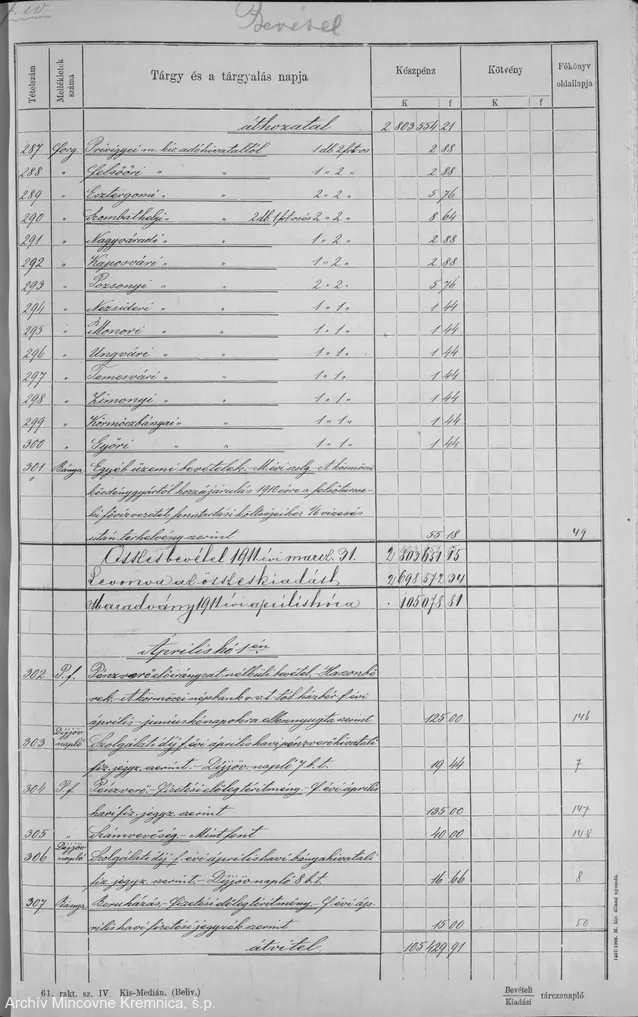 Bevétel
Tételszám
Mellékletek száma
Tárgy és a tárgyalás napja
Készpénz
Kötvény
Főkönyv oldallapja
K f K f
áthozatal 2 803 554 21
287 forg. Privigyei m. kir. adóhivataltól 1 db 2 frt-os 2 88
288 " Felsőőri " " 1 " 2 " 2 88
289 " Esztergomi " " 2 " 2 " 5 76
290 " Szombathelyi " " 2 db 1 frt-os és 2 " 2 " 8 64
291 " Nagyváradi " " 1 " 2 " 2 88
292 " Kaposvári " " 1 " 2 " 2 88
293 " Pozsonyi " " 2 " 2 " 5 76
294 " Nezsideri " " 1 " 1 " 1 44
295 " Monori " " 1 " 1 " 1 44
296 " Ungvári " " 1 " 1 " 1 44
297 " Temesvári " " 1 " 1 " 1 44
298 " Zimonyi " " 1 " 1 " 1 44
299 " Körmöczbányai " " 1 " 1 " 1 44
300 " Győri " " 1 " 1 " 1 44
301 Bánya Egyéb üzemi bevételek. - Mévi szolg. - A körmöczi
kőedénygyártól hozzájárulás 1910 évre a felsőturcse-
ki fővízvezeték fenntartási költségeihez 1/6 vizesés
után térhetvény szerint 55 18 49
Összes bevétel 1911 évi marcz. 31. 2 803 651 15
Levonva az összes kiadást 2 698 572 34
Maradvány 1911 évi április hóra 105 078 81
Április hó 1-én
302 P.f. Pénzverő előirányzat nélküli bevétel. - Haszonbé-
rek. - A körmöczi népbank r.t.-től házbér f. évi
április - junius hónapokra ellennyugta szerint 125 00 146
303 Díjjöv. napló Szolgálati díj f. évi április havi pénzverőhivatali
fiz. jegyz. szerint. - Díjjöv. napló 7 b.t. 19 44 7
304 P.f. Pénzverő - Fizetési előleg térítmény. - f. évi április
havi fiz. jegyz. szerint 135 00 147
305 " Számvevőség - Mint fent 40 00 148
306 Díjjöv. napló Szolgálati díj f. évi április havi bányahivatali
fiz. jegyz. szerint. - Díjjöv. napló 8 b.t. 16 66 8
307 Bánya Beruházás. - Fizetési előleg térítmény. - f. évi áp-
rilis havi fizetési jegyzék szerint 15 00 50
átvitel 105 429 91
61. rakt. sz. IV Kis-Medián. (Beliv.)
Bevételi
Kiadási tárczanapló
Archív Mincovne Kremnica, š.p.